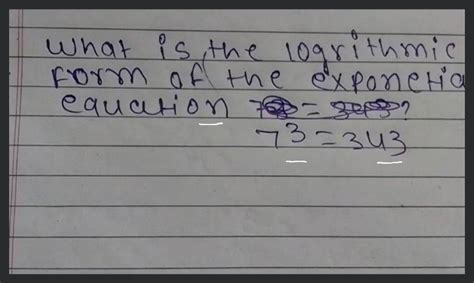 What is the logrithmic
Form of the exponetia
equation ?
7³=343